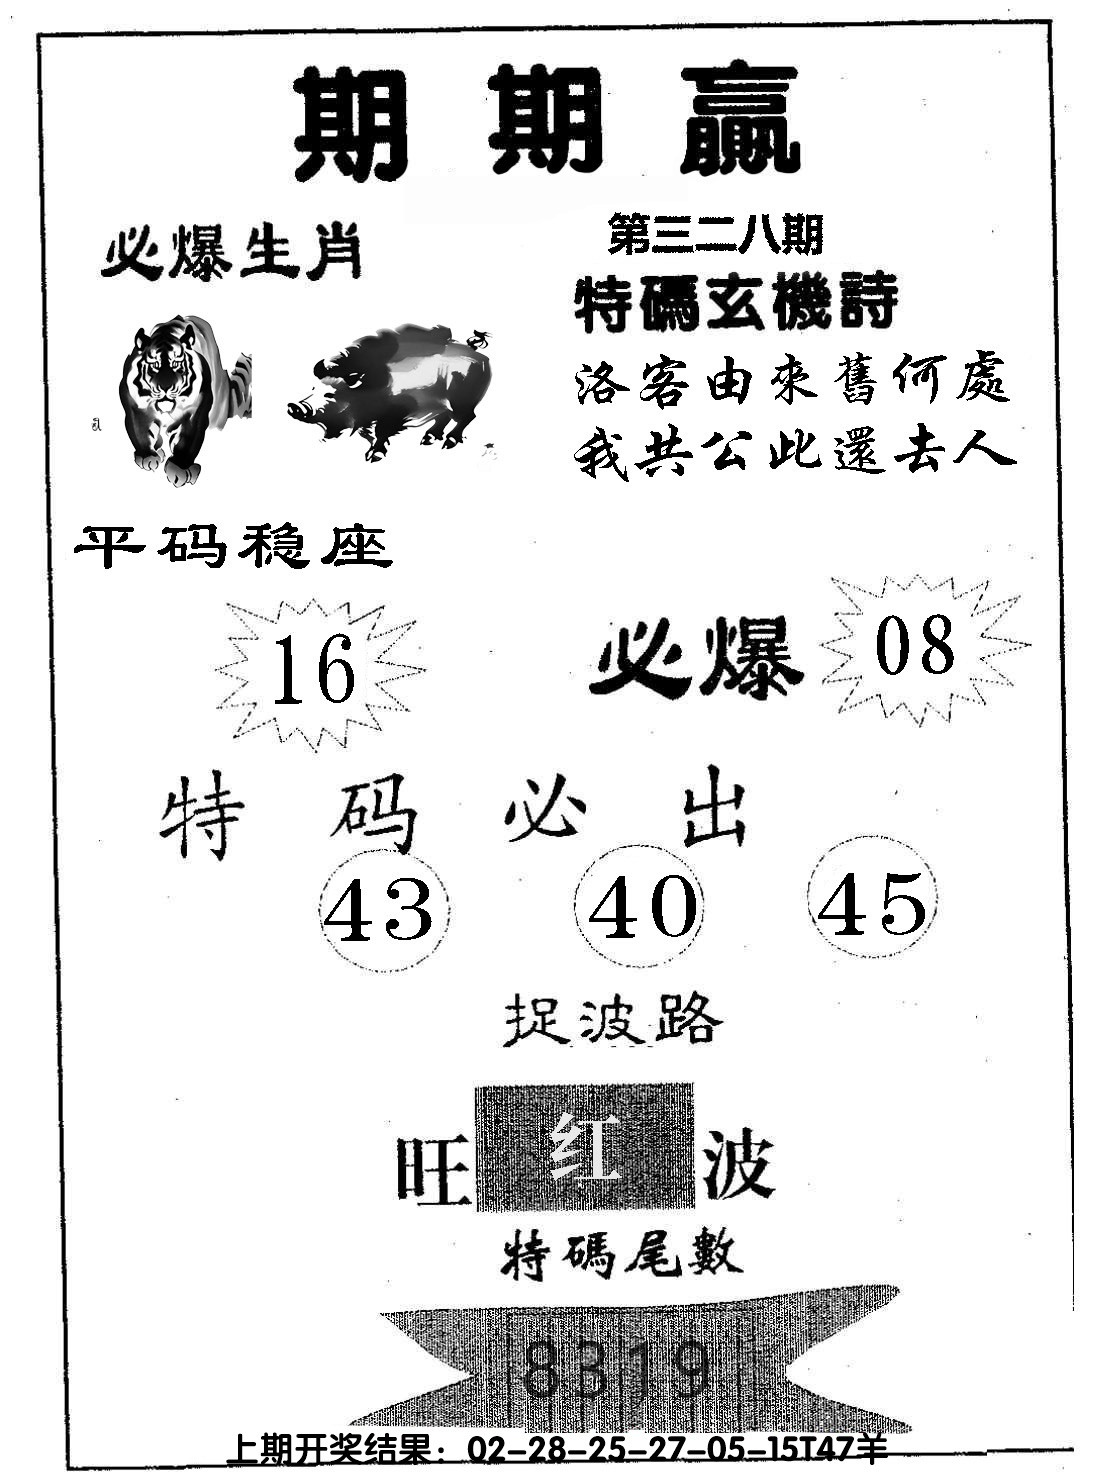 期期赢
必爆生肖
第三二八期
特碼玄機詩
洛客由來舊何處
我共公此還去人
平码稳座
16
必爆
08
特码必出
43
40
45
捉波路
旺
红
波
特碼尾數
8319
上期开奖结果：02-28-25-27-05-15T47羊